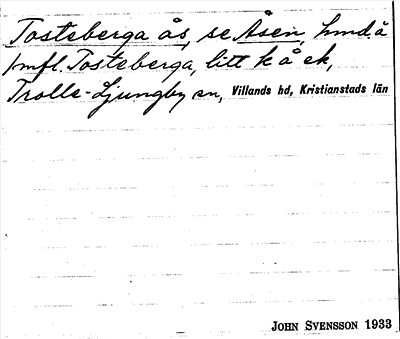 Tosteberga ås, se Åsen hmdå
fmfl. Tosteberga, litt k å ek,
Trolle-Ljungby sn, Villands hd, Kristianstads län
JOHN SVENSSON 1933